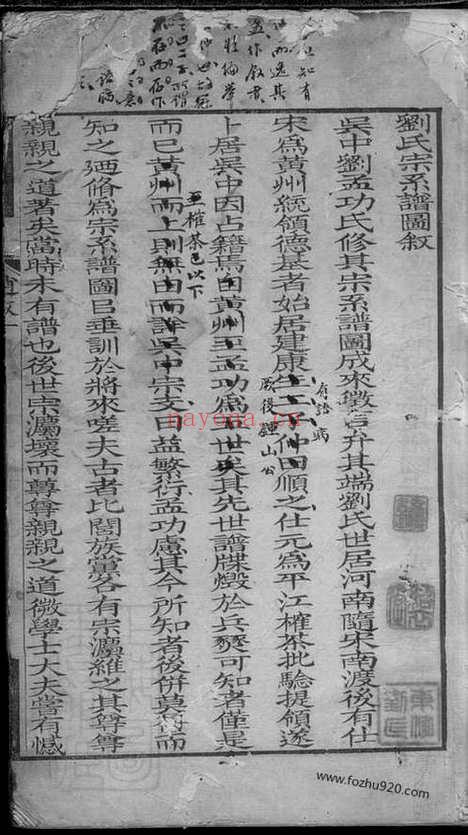 劉氏宗系譜圖叙
吳中劉孟功氏修其宗系譜圖成來徵言弁其端劉氏世居河南隨宋南渡後有仕
宋爲黃州統領德基者始居建康生 仲田順之仕元爲平江榷茶批驗提領遂
卜居吳中因占籍焉自黃州至孟功爲 世矣其先世譜牒燬於兵燹可知者僅是
而已黃州而上則無由而詳吳中宗支日益繁衍孟功慮其今所知者後併莫得而
知之廼脩爲宗系譜圖已垂訓於將來嗟夫古者比閭族黨各有宗灋維之其尊尊
親親之道著矣當時未有譜也後世宗灋壞而尊尊親親之道微學士大夫嘗有憾
有語病
至榷茶已以下
知有
而逸其
孟作叙者
nayona.com
www.fozhu920.com